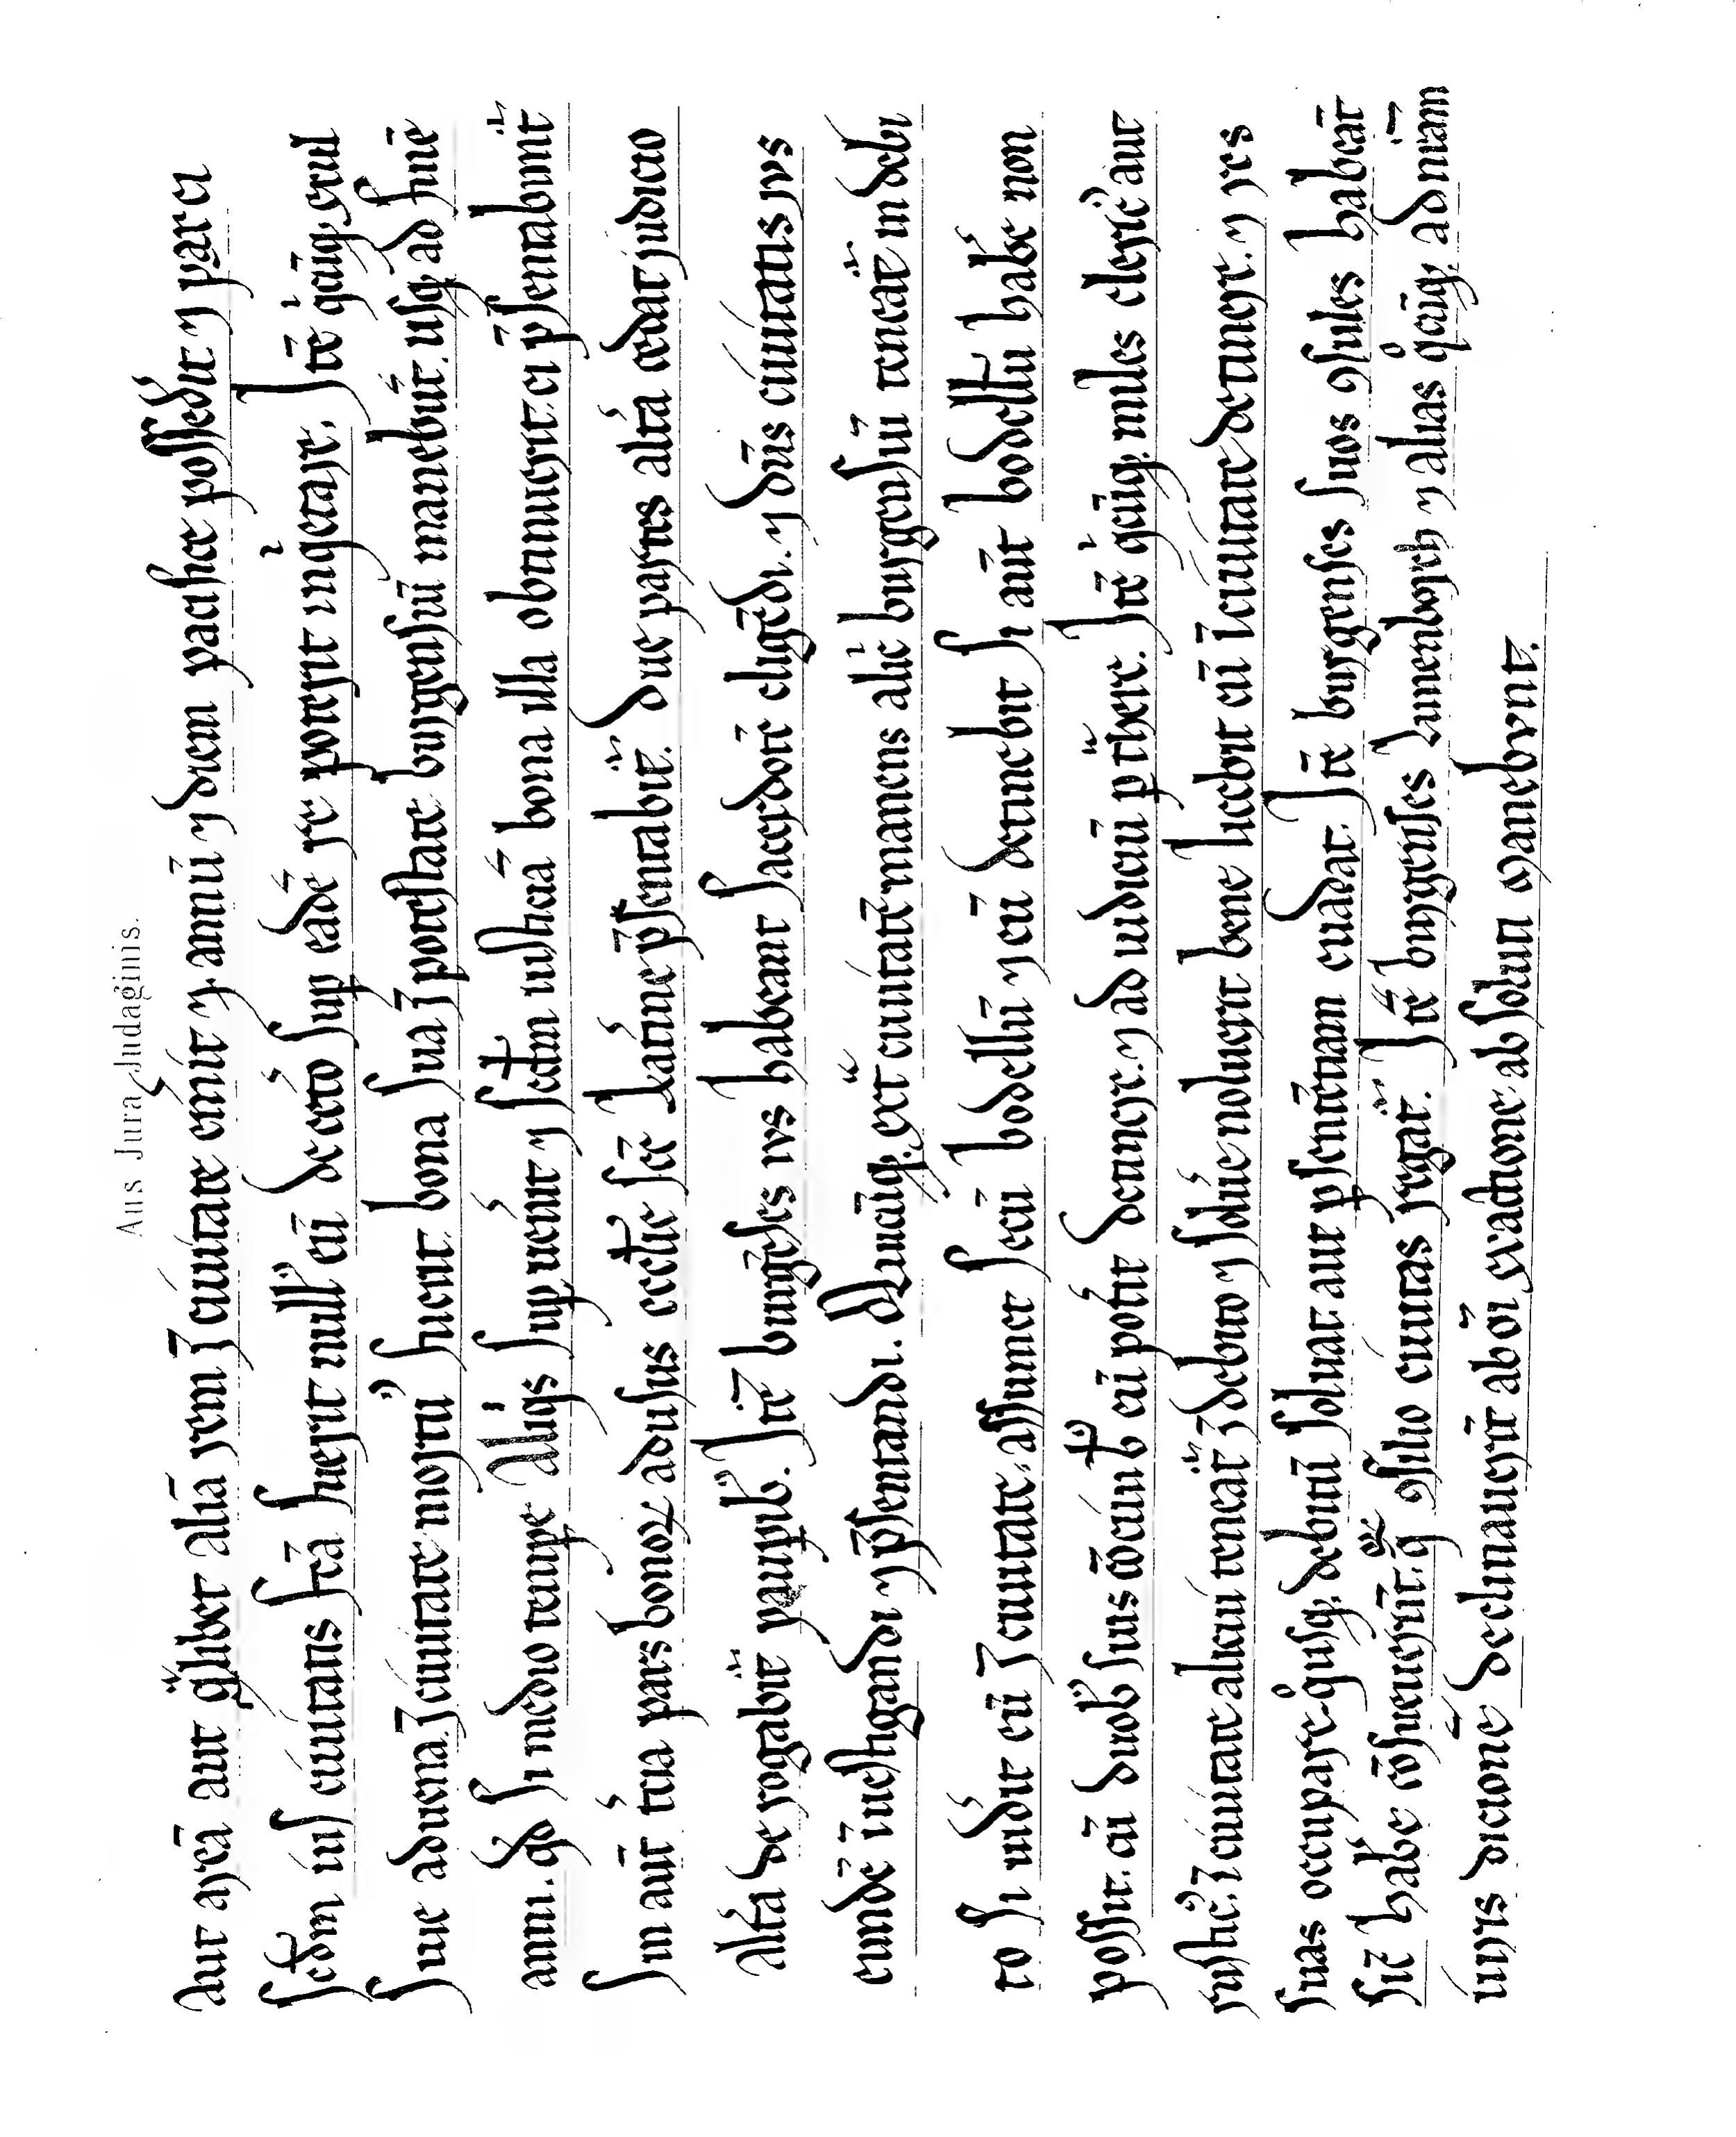 Aus Jura Indaginis.
aut areā aut q̃libet aliā rem ī ciuitate emit ⁊ annū ⁊ diem pacifice possedit ⁊ parci
scdm iuſ ciuitatis fcā fuerit null' eū de cetō sup eadē re poterit inqetare. Itē qͥcūq; exul
siue aduena ī ciuitate mortu' fuerit bona sua ī potestate burgensiū manebūt usq; ad finē
anni. qd si medio tempe aliqͥs supuenit ⁊ scdm iusticiā bona illa obtinuerit. ei p̄sentabunt̄
Sin aūt tcia pars bonoꝝ ad usus ecclie scē katine p̄sentabit̄. due partes altā cedat judicio
altā de rogabit̄ paupib'. Itē burgēses ius habeant sacerdotē eligēdi. ⁊ dn̄s ciuitatis jus
eundē īuestigandi ⁊ p̄sentandi. Quicūq; ext̄ ciuitatē manens alic burgensiū teneat̄ in debi
to si uidit eū ī ciuitate. assumet secū bodellū ⁊ eū detinebit si aūt bodellū habe non
possit. cū duob' suis cōciuib' eū potit detinere. ⁊ ad iudiciū ptͣhere. Itē qͥcūq; miles cleric' aut
rustic'. ī ciuitate alicui teneat̄ ī debito ⁊ solue noluerit bene licebit eū ī ciuitate detinere. ⁊ res
suas occupare. qͦusq; debitū soluat. aut p̄sentiam euadat. Itē burgenses suos ꝯsules habeāt
sic̄ habe cōsueuerūt. q̄ ꝯsilio ciuitas regat̄. Itē burgenses lunenborch ⁊ alias qͦcūq; ad n̄rām
iuris dicionē declinauerīt ab oī exactione absoluti manebunt.